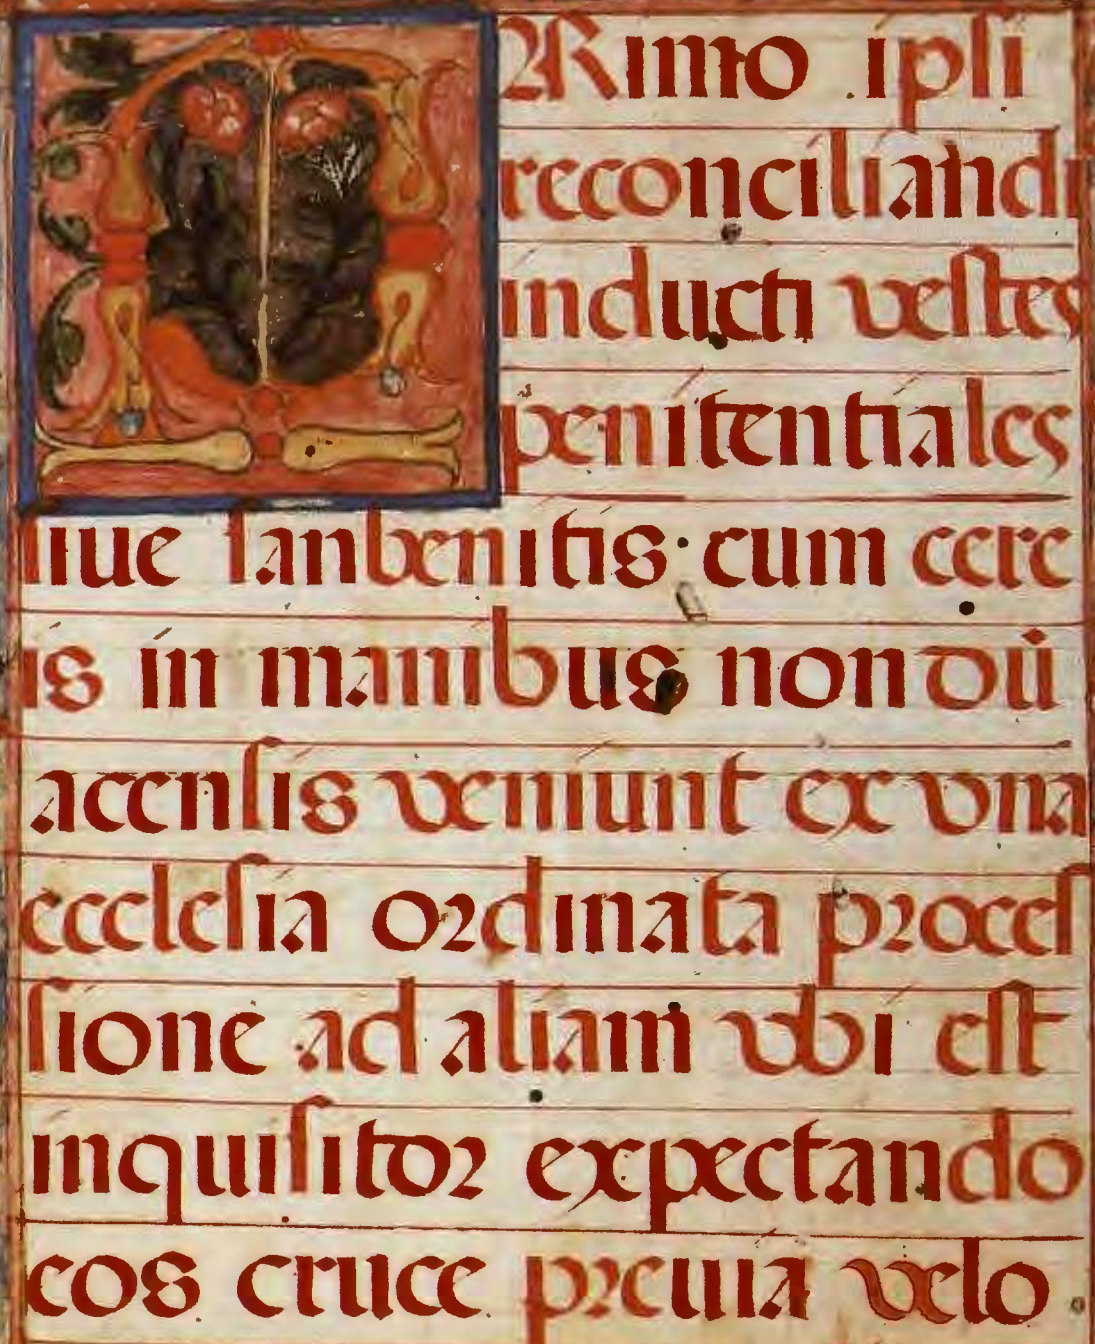 PRimo ipſi
reconciliandi
inducti veſtes
penitentiales
ſiue ſanbenitis cum cere
is in manibus non dū
accenſis veniunt ex vna
eccleſia ordinata proceſ
ſione ad aliam vbi eſt
inquiſitor expectando
eos cruce preuia velo